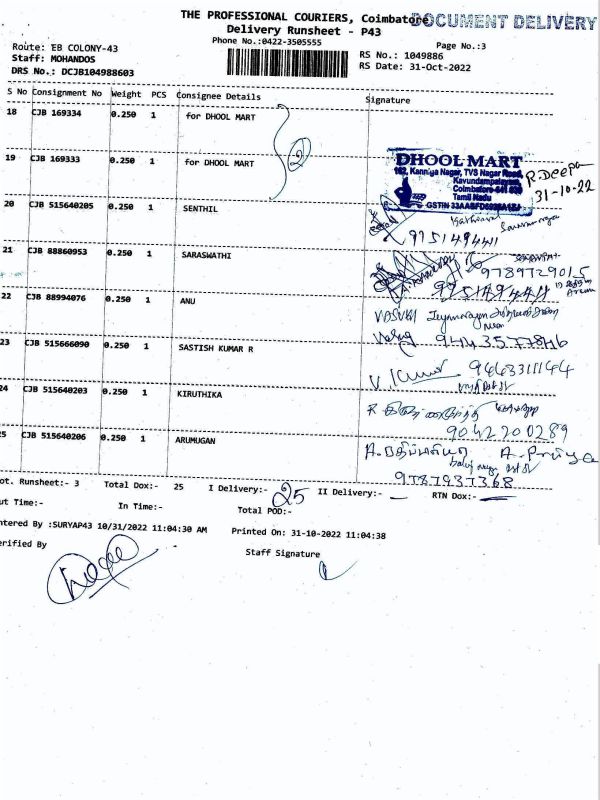 THE PROFESSIONAL COURIERS, Coimbatore
DOCUMENT DELIVERY
Delivery Runsheet - P43
Phone No.:0422-3505555
Page No.:3
Route: EB COLONY-43
Staff: MOHANDOS
DRS No.: DCJB104988603
RS No.: 1049886
RS Date: 31-Oct-2022
S No Consignment No Weight PCS Consignee Details Signature
18 CJB 169334 0.250 1 for DHOOL MART
2
19 CJB 169333 0.250 1 for DHOOL MART
DHOOL MART
162, Kanniya Nagar, TVS Nagar Road,
Kavundampalayam,
Coimbatore-641
Tamil Nadu
R. Deepa
31-10-22
20 CJB 515640205 0.250 1 SENTHIL
975149441
21 CJB 88860953 0.250 1 SARASWATHI
9789729015
22 CJB 88994076 0.250 1 ANU
VASUKI
9443577846
23 CJB 515666090 0.250 1 SASTISH KUMAR R
V. Kumar
24 CJB 515640203 0.250 1 KIRUTHIKA
9042200289
25 CJB 515640206 0.250 1 ARUMUGAN
A. Priya
9787937368
Tot. Runsheet:- 3 Total Dox:- 25 I Delivery:- 25 II Delivery:- — RTN Dox:- —
Out Time:- In Time:- Total POD:-
Entered By :SURYAP43 10/31/2022 11:04:30 AM Printed On: 31-10-2022 11:04:38
Verified By Staff Signature